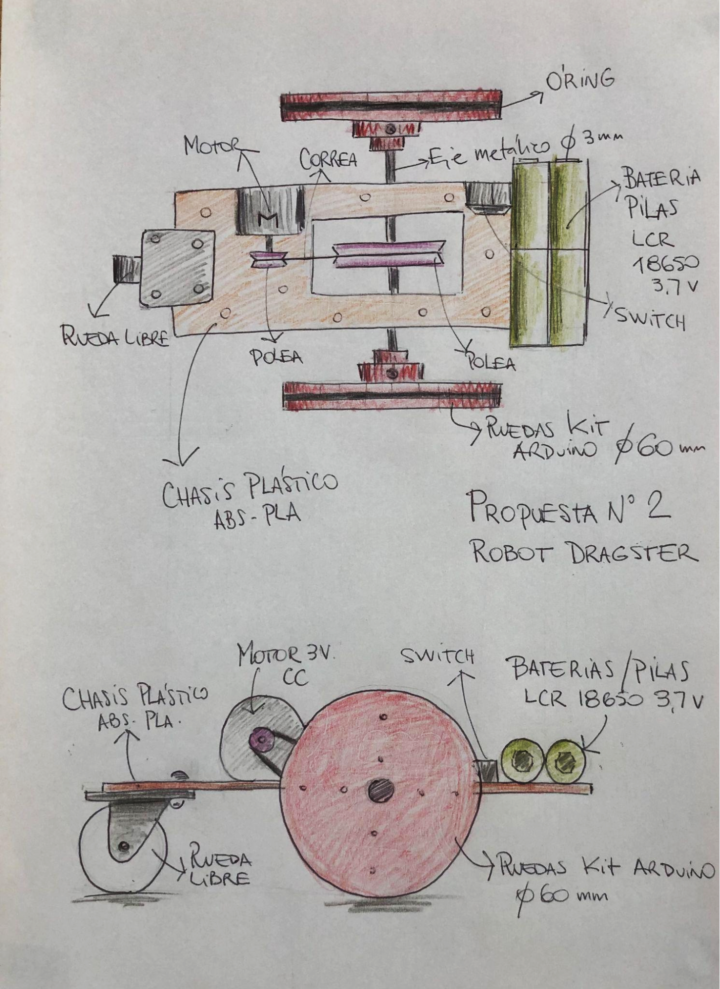 O'RING
MOTOR
CORREA
Eje metálico ϕ 3mm
BATERIA
PILAS
LCR
18650
3,7 V
M
SWITCH
RUEDA LIBRE
POLEA
POLEA
RUEDAS Kit
ARDUINO ϕ60 mm
CHASIS PLÁSTICO
ABS-PLA
PROPUESTA N° 2
ROBOT DRAGSTER
MOTOR 3V.
CC
SWITCH
BATERIAS/PILAS
LCR 18650 3,7V
CHASIS PLÁSTICO
ABS. PLA.
RUEDA
LIBRE
RUEDAS Kit ARDUINO
ϕ60 mm